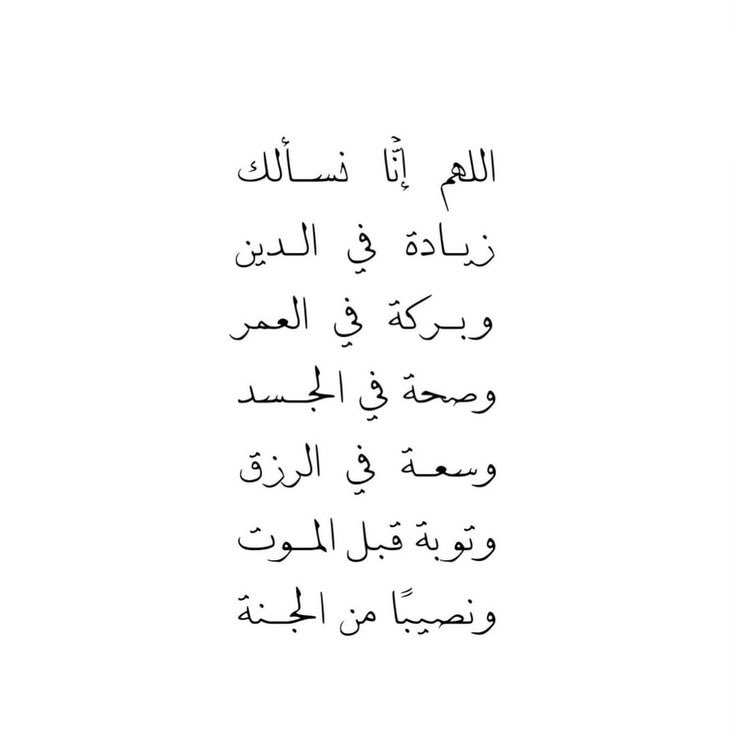 اللهم إنَّا نسألك
زيادة في الدين
وبركة في العمر
وصحة في الجسد
وسعة في الرزق
وتوبة قبل الموت
ونصيبًا من الجنة